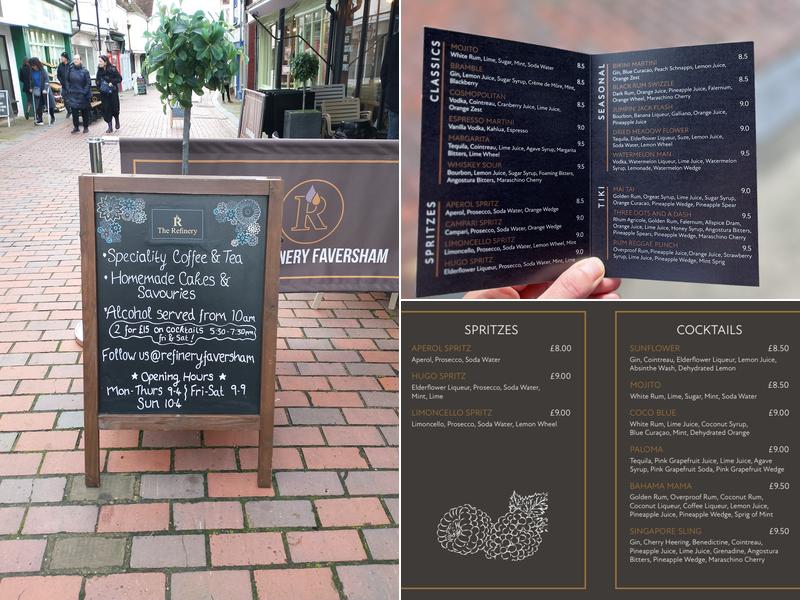 The Refinery
•Speciality Coffee & Tea
•Homemade Cakes &
Savouries
•Alcohol served from 10am
2 for £15 on cocktails 5:30-7:30pm
Fri & Sat!
Follow us@refineryfaversham
★ Opening Hours ★
Mon-Thurs 9-4 Fri-Sat 9-9
Sun 10-4
R
NERY FAVERSHAM
CLASSICS
MOJITO 8.5
White Rum, Lime, Sugar, Mint, Soda Water
BRAMBLE 8.5
Gin, Lemon Juice, Sugar Syrup, Crème de Mûre, Mint,
Blackberry
COSMOPOLITAN
Vodka, Cointreau, Cranberry Juice, Lime Juice, 8.5
Orange Zest
ESPRESSO MARTINI 9.0
Vanilla Vodka, Kahlua, Espresso
MARGARITA 9.0
Tequila, Cointreau, Lime Juice, Agave Syrup, Margarita
Bitters, Lime Wheel
WHISKEY SOUR 9.0
Bourbon, Lemon Juice, Sugar Syrup, Foaming Bitters,
Angostura Bitters, Maraschino Cherry
SPRITZES
APEROL SPRITZ 8.5
Aperol, Prosecco, Soda Water, Orange Wedge
CAMPARI SPRITZ 9.0
Campari, Prosecco, Soda Water, Orange Wedge
LIMONCELLO SPRITZ 9.0
Limoncello, Prosecco, Soda Water, Lemon Wheel, Mint
HUGO SPRITZ 9.0
Elderflower Liqueur, Prosecco, Soda Water, Mint, Lime
SEASONAL
BIKINI MARTINI 8.5
Gin, Blue Curacao, Peach Schnapps, Lemon Juice,
Orange Zest
BLACK RUM SWIZZLE 8.5
Dark Rum, Orange Juice, Pineapple Juice, Falernum,
Orange Wheel, Maraschino Cherry
JUMPIN' JACK FLASH 9.0
Bourbon, Banana Liqueur, Galliano, Orange Juice,
Pineapple Juice
DRIED MEADOW FLOWER 9.0
Tequila, Elderflower Liqueur, Suze, Lemon Juice,
Soda Water, Lemon Wheel
WATERMELON MAN 9.5
Vodka, Watermelon Liqueur, Lime Juice, Watermelon
Syrup, Lemonade, Watermelon Wedge
TIKI
MAI TAI 9.0
Golden Rum, Orgeat Syrup, Lime Juice, Sugar Syrup,
Orange Curacao, Pineapple Wedge, Pineapple Spear
THREE DOTS AND A DASH 9.5
Rhum Agricole, Golden Rum, Falernum, Allspice Dram,
Orange Juice, Lime Juice, Honey Syrup, Angostura Bitters,
Pineapple Spears, Pineapple Wedge, Maraschino Cherry
RUM REGGAE PUNCH 9.5
Overproof Rum, Pineapple Juice, Orange Juice, Strawberry
Syrup, Lime Juice, Pineapple Wedge, Mint Sprig
SPRITZES
APEROL SPRITZ £8.00
Aperol, Prosecco, Soda Water
HUGO SPRITZ £9.00
Elderflower Liqueur, Prosecco, Soda Water,
Mint, Lime
LIMONCELLO SPRITZ £9.00
Limoncello, Prosecco, Soda Water, Lemon Wheel
COCKTAILS
SUNFLOWER £8.50
Gin, Cointreau, Elderflower Liqueur, Lemon Juice,
Absinthe Wash, Dehydrated Lemon
MOJITO £8.50
White Rum, Lime, Sugar, Mint, Soda Water
COCO BLUE £9.00
White Rum, Lime Juice, Coconut Syrup,
Blue Curaçao, Mint, Dehydrated Orange
PALOMA £9.00
Tequila, Pink Grapefruit Juice, Lime Juice, Agave
Syrup, Pink Grapefruit Soda, Pink Grapefruit Wedge
BAHAMA MAMA £9.50
Golden Rum, Overproof Rum, Coconut Rum,
Coconut Liqueur, Coffee Liqueur, Lemon Juice,
Pineapple Juice, Pineapple Wedge, Sprig of Mint
SINGAPORE SLING £9.50
Gin, Cherry Heering, Benedictine, Cointreau,
Pineapple Juice, Lime Juice, Grenadine, Angostura
Bitters, Pineapple Wedge, Maraschino Cherry